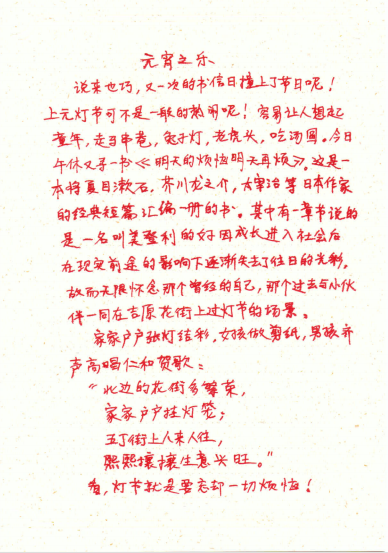 元宵之乐
说来也巧，又一次的书信日撞上了节日呢！
上元灯节可不是一般的热闹呢！容易让人想起
童年，走马串巷，兔子灯，老虎头，吃汤圆。今日
午休又寻一书《明天的烦恼明天再烦》。这是一
本将夏目漱石，芥川龙之介，太宰治等日本作家
的经典短篇汇编一册的书。其中有一章节说的
是一名叫美登利的好因成长进入社会后
在现实前途的影响下逐渐失去了往日的光彩，
故而无限怀念那个曾经的自己，那个过去与小伙
伴一同在吉原花街上过灯节的场景。
家家户户张灯结彩，女孩做剪纸，男孩齐
声高唱仁和贺歌：
“北边的花街多繁荣，
家家户户挂灯笼；
五丁街上人来人往，
熙熙攘攘生意兴旺。”
看，灯节就是要忘却一切烦恼！